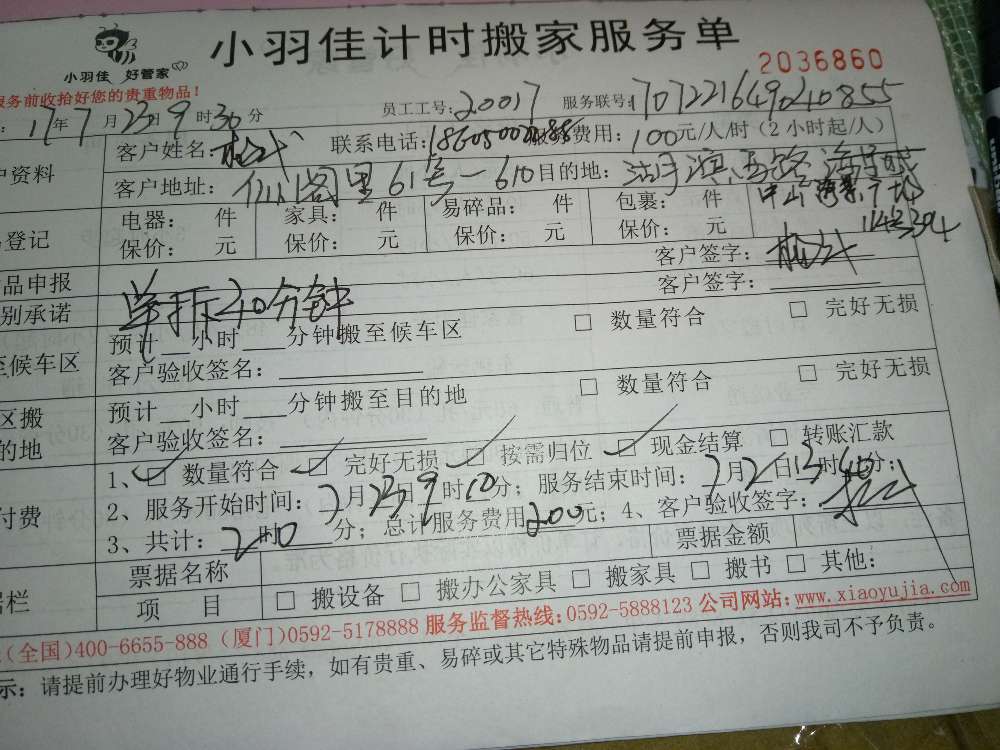 小羽佳计时搬家服务单
小羽佳 好管家
2036860
服务前收拾好您的贵重物品！
17年7月23日9时30分 员工工号：20017 服务联号：
客户姓名： 联系电话： 费用：100元/人/时（2小时起/人）
户资料
客户地址： 阁里61号-610 目的地：湖滨 路海
中山 广场
登记
电器： 件 家具： 件 易碎品： 件 包裹： 件
保价： 元 保价： 元 保价： 元 保价： 元
品申报 客户签字：
别承诺 单拆20分钟 客户签字：
预计 小时 分钟搬至候车区 □ 数量符合 □ 完好无损
至候车区
客户验收签名：
区搬
预计 小时 分钟搬至目的地 □ 数量符合 □ 完好无损
的地
客户验收签名：
1、☑ 数量符合 ☑ 完好无损 ☑ 按需归位 ☑ 现金结算 □ 转账汇款
2、服务开始时间：7月23日9时 分；服务结束时间：7月 日 时40分；
付费
3、共计：2时0分；总计服务费用200元；4、客户验收签字：
票据名称 票据金额
据栏
项 目 □ 搬设备 □ 搬办公家具 □ 搬家具 □ 搬书 □ 其他：
（全国）400-6655-888（厦门）0592-5178888 服务监督热线：0592-5888123 公司网站：www.xiaoyujia.com
示：请提前办理好物业通行手续，如有贵重、易碎或其它特殊物品请提前申报，否则我司不予负责。